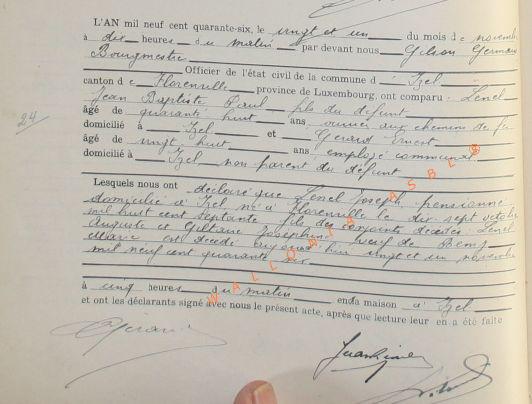 L'AN mil neuf cent quarante-six, le vingt et un du mois de novembre
à dix heures du matin par devant nous Gilson Germain
Bourgmestre
Officier de l'état civil de la commune d'Izel
canton de Florenville province de Luxembourg, ont comparu: Lenel
Jean Baptiste Paul fils du défunt
âgé de quarante huit ans ouvrier aux chemins de fer
domicilié à Izel et Gérard Ernest
âgé de vingt huit ans employé communal
domicilié à Izel non parent du défunt
24
Lesquels nous ont déclaré que Lenel Joseph pensionné
domicilié à Izel né à Florenville le dix sept octobre
mil huit cent septante fils des conjoints décédés Lenel
Auguste et Joséphine veuf de
Marie est décédé vingt et un novembre
mil neuf cent quarante six
à cinq heures du matin en sa maison à Izel
et ont les déclarants signé avec nous le présent acte, après que lecture leur en a été faite
WALLONIA ASBL